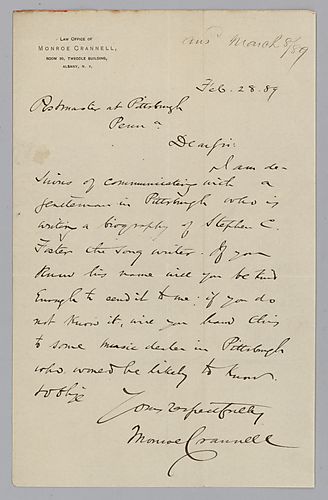 LAW OFFICE OF
MONROE CRANNELL,
ROOM 20, TWEDDLE BUILDING,
ALBANY, N. Y.
ansd March 8/89
Feb. 28. 89
Postmaster at Pittsburgh
Penna
Dear Sir:
I am de-
sirous of communicating with a
gentleman in Pittsburgh who is
writing a biography of Stephen C.
Foster the song writer. If you
know his name will you be kind
enough to send it to me: if you do
not know it, will you hand this
to some music dealer in Pittsburgh
who would be likely to know.
& oblige
Yours respectfully
Monroe Crannell